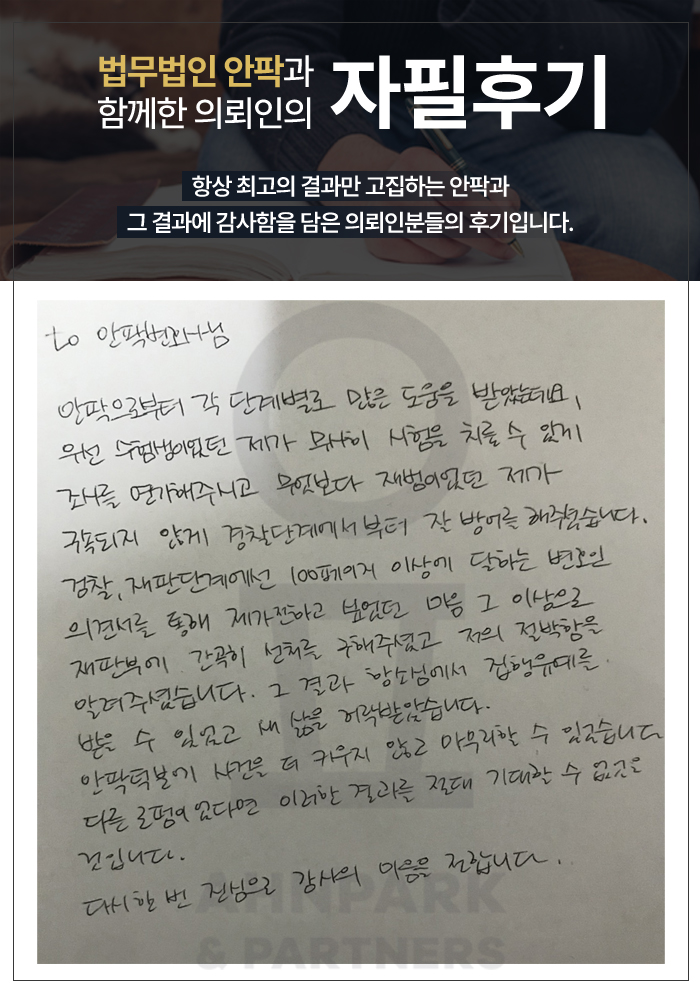 법무법인 안팍과
함께한 의뢰인의
자필후기
항상 최고의 결과만 고집하는 안팍과
그 결과에 감사함을 담은 의뢰인분들의 후기입니다.
to 안팍변호사님
안팍으로부터 각 단계별로 많은 도움을 받았는데요,
우선 수험생이었던 제가 무사히 시험을 치를 수 있게
조사를 연기해주시고 무엇보다 재범이었던 제가
구속되지 않게 경찰단계에서부터 잘 방어를 해주셨습니다.
검찰, 재판단계에선 100페이지 이상에 달하는 변호인
의견서를 통해 제가전하고 싶었던 마음 그 이상으로
재판부에 간곡히 선처를 구해주셨고 저의 절박함을
알려주셨습니다. 그 결과 항소심에서 집행유예를
받을 수 있었고 새 삶을 허락받았습니다.
안팍덕분에 사건을 더 키우지 않고 마무리할 수 있었습니다
다른 로펌이었다면 이러한 결과를 절대 기대할 수 없었을
것입니다.
다시한번 진심으로 감사의 마음을 전합니다.
AHNPARK
& PARTNERS